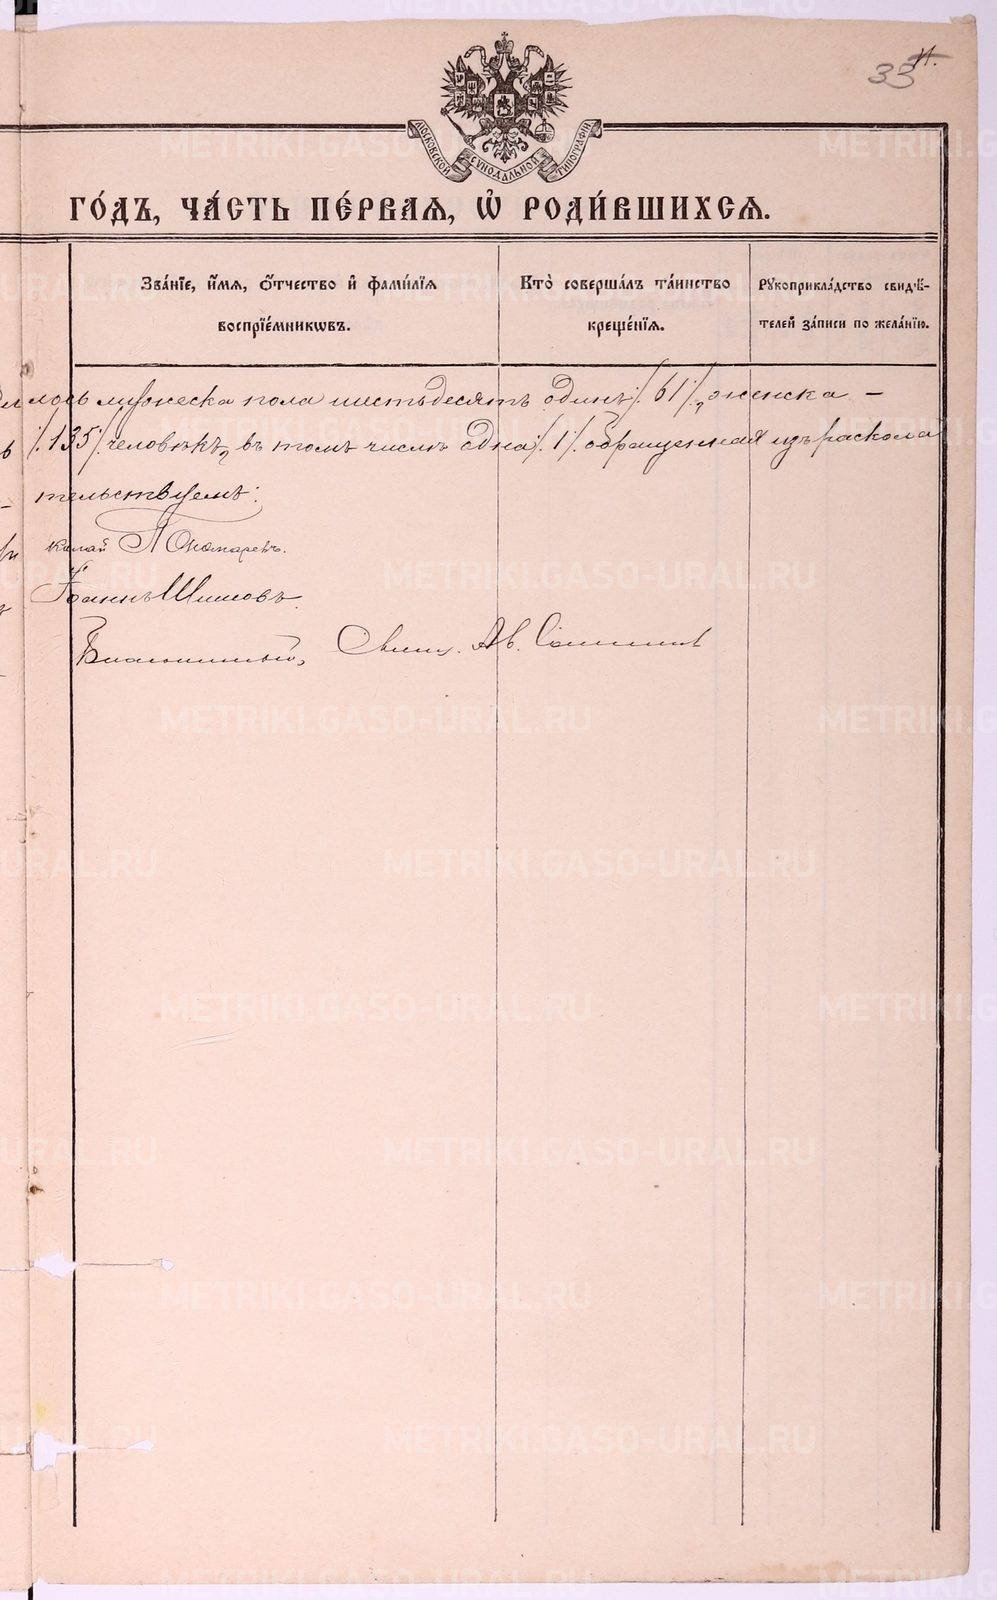 33
МОСКОВСКОЙ СѴНОДАЛЬНОЙ ТИПОГРАФІИ
ГО́ДЪ, ЧА́СТЬ ПЕ́РВАЯ, Ѡ҆ РОДИ́ВШИХСЯ.
Зва́нїе, и҆́мя, ѻ҆́тчество и҆ фами́лїя
воспрїе́мникѡвъ.
Кто̀ соверша́лъ та́инство
креще́нїя.
Рꙋкоприкла́дство свидѣ́-
телей за́писи по жела́нїю.
лось мужеска пола шестьдесятъ одинъ /61/, женска –
/135/ человѣкъ, въ томъ числѣ одна /1/ обращенная изъ раскола
тельствуемъ:
колай Пономаревъ.
Іоаннъ Шишовъ
Свящ. Ав.
METRIKI.GASO-URAL.RU